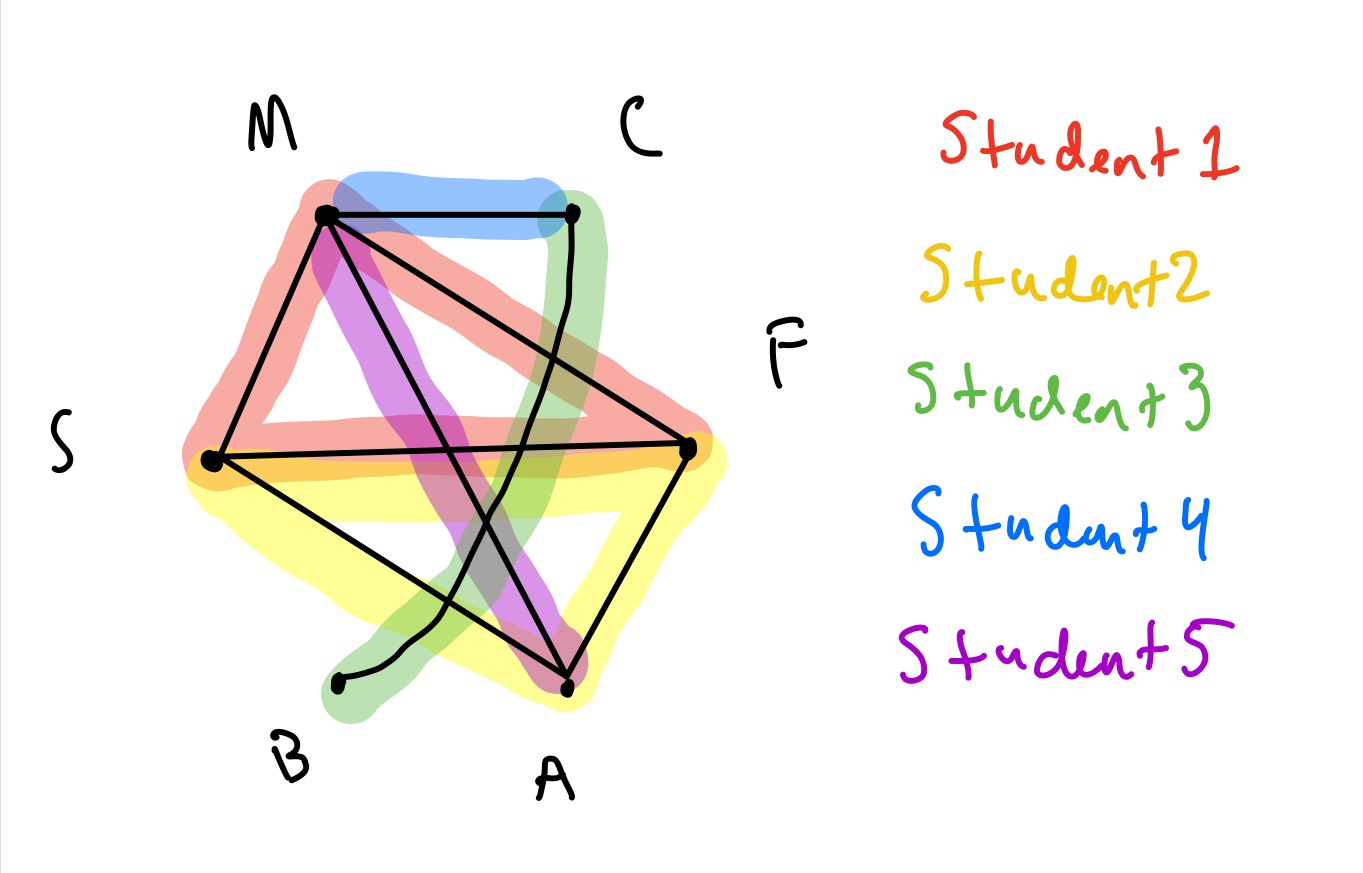 M C
F
S
B A
Student 1
Student 2
Student 3
Student 4
Student 5